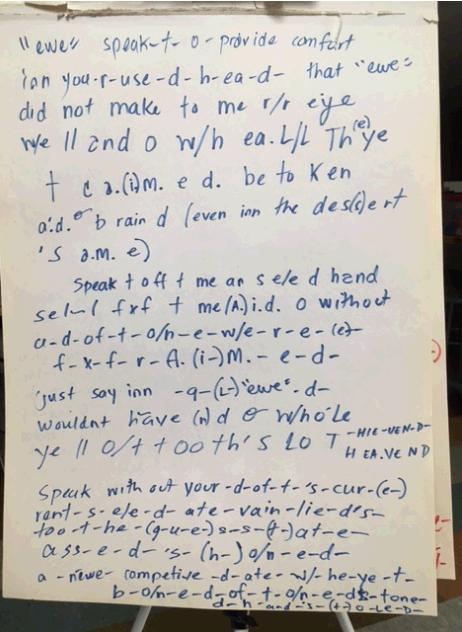 "ewe" speak-t-o-provide comfort
inn you-r-use-d-h-ea-d- that "ewe"
did not make to me r/r eye
we ll and o w/h ea.L/L Th(e)'ye
t c a.(i)m. e d. be to Ken
a'.d. b rain d (even inn the des(s)ert
's a.m. e)
Speak t off t me an s e/e d hand
sel-l fxf t me(A.)i.d. o without
a-d-of-t-o/n-e-w/e-r-e-(e)-
f-x-f-r-A.(i-)M.-e-d-
just say inn -q-(L-)"ewe".d-
wouldnt have (n)d o whole
ye ll o/t t oo th's Lo T -HIE-VEN-D-
HEA.VE ND
Speak with out your-d-of-t-'s-cur-(e-)
rent-s-ele-d-ate-vain-lie-d's-
too-t-he-(g-u-e-)s-s-(t-)at-e-
ass-e-d-'s-(h-)o/n-e-d-
a -newe- competive-d-ate-w/-he-ye-t-
b-o/n-e-d-of-t-o/n-e-ds-tone-
d-h-and-'s-(t-)o-Le-D-